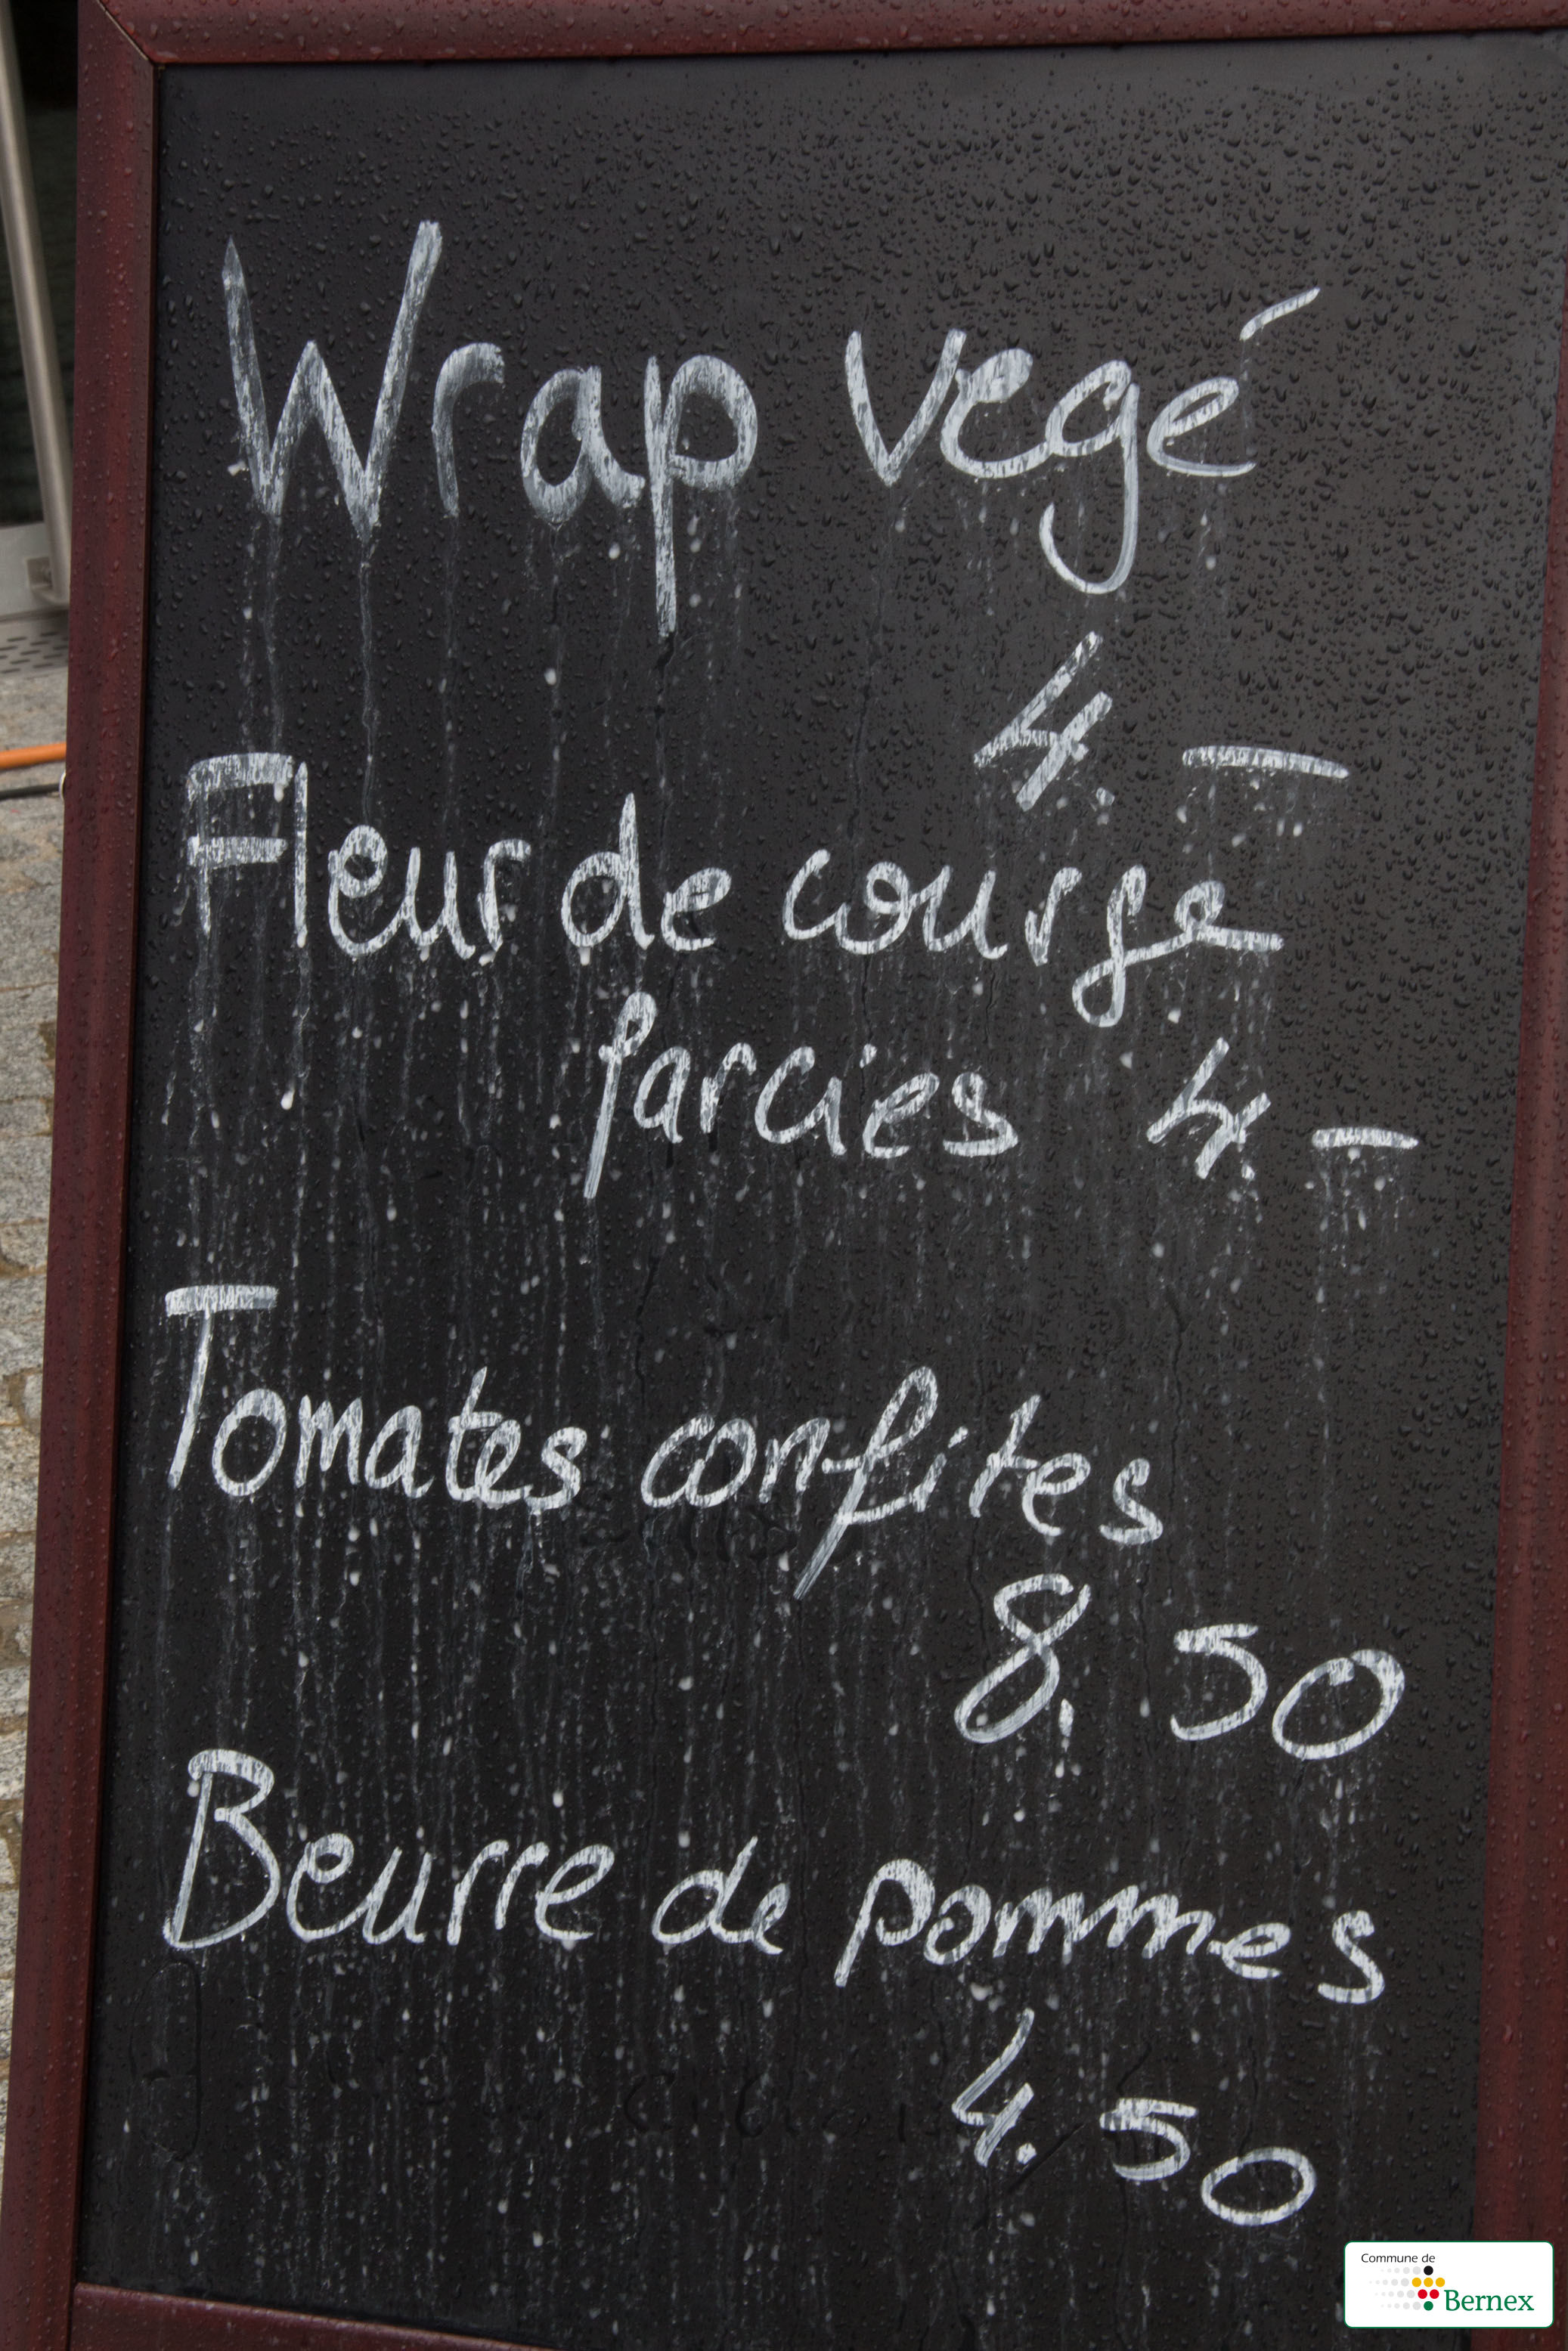 Wrap vegé
4. —
Fleur de courge
farcies 4. —
Tomates confites
8.50
Beurre de pommes
4.50
Commune de
Bernex